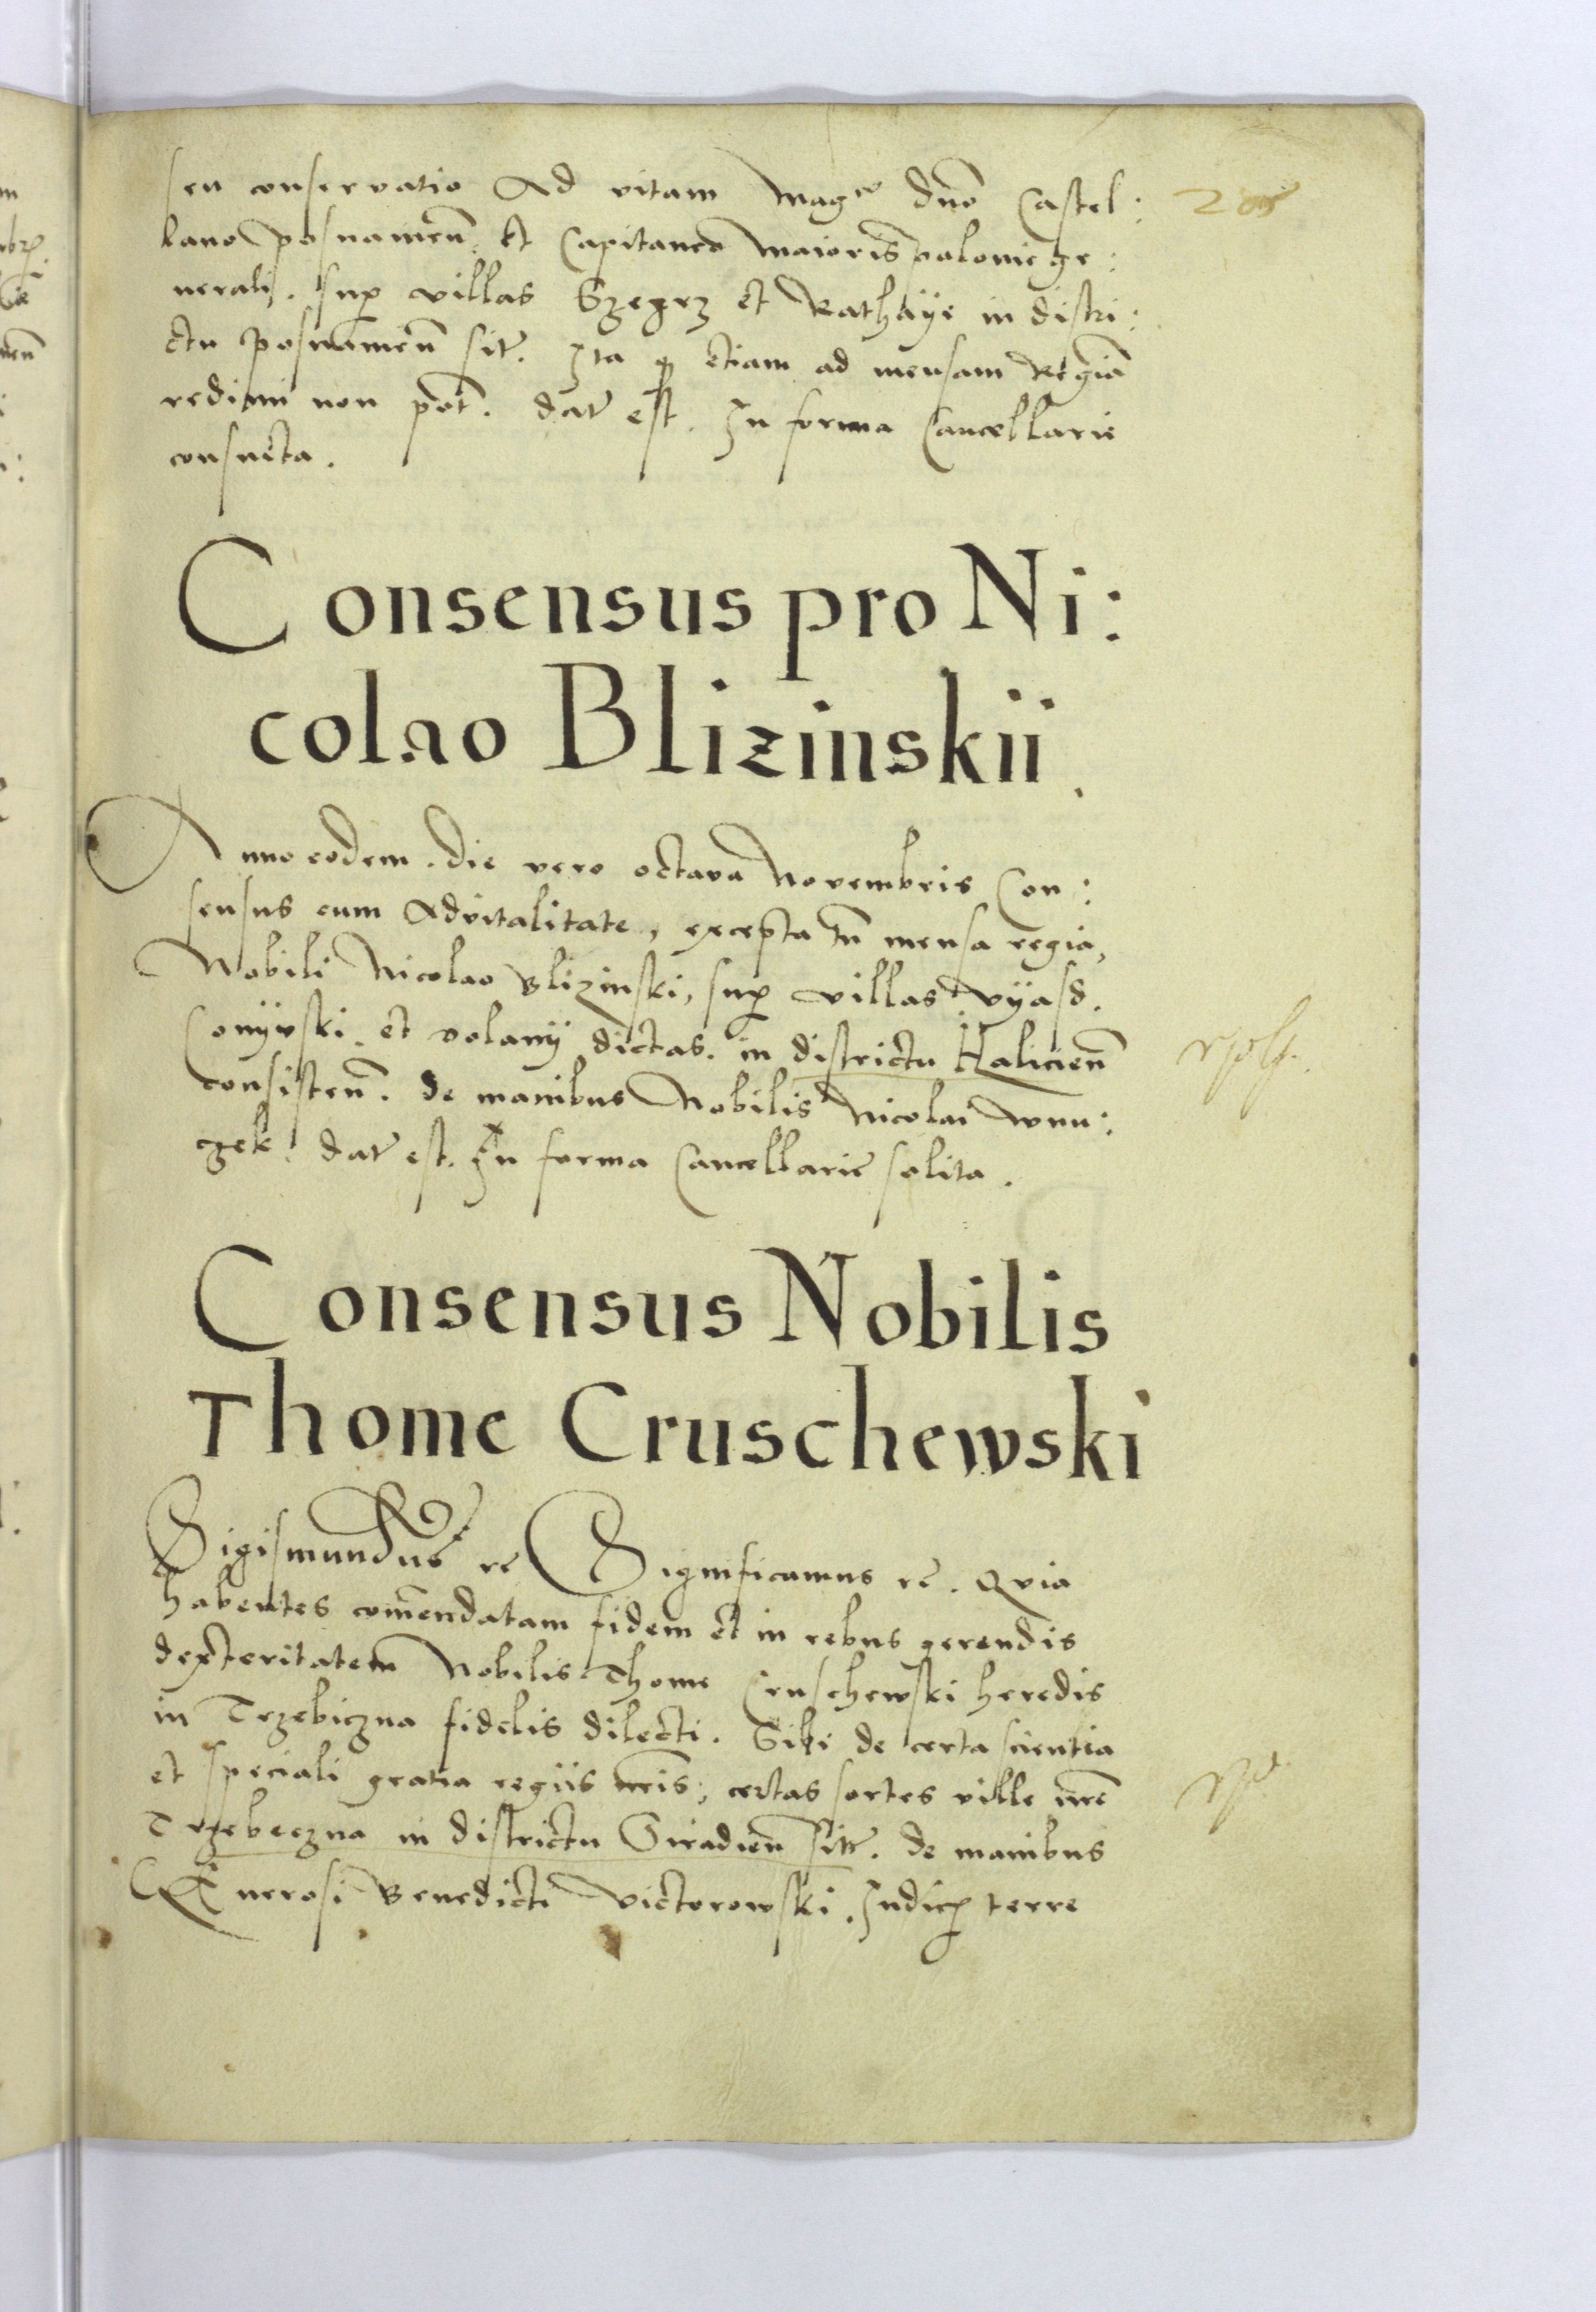 seu conservatio Ad vitam Mag^co dno Castel:
lano posnamen. Et Capitaneo maioris polonie ge:
nerali. sup villas Szegrz et Rathaÿe in distri:
ctu Posnamen sit. Ita q etiam ad mensam Regia
redimi non pot. dat est. In forma Cancellarie
consueta.
Consensus pro Ni:
colao Blizinskii.
Anno eodem. die vero octava Novembris Con:
sensus cum Advitalitate, excepta tn mensa regia,
Nobili Nicolao Blizinski, sup villas Vÿasd.
Conÿvski. et volanÿ dictas. in districtu Halicien
consisten. de manibus Nobilis Nicolai Wnu:
czek. dat est. In forma Cancellarie solita.
Consensus Nobilis
Thome Cruschewski
Sigismundus rc Significamus rc. Qvia
habentes comendatam fidem et in rebus gerendis
dexteritatem Nobilis Thome Cruschewski heredis
in Trzebiczna fidelis dilecti. Sibi de certa scientia
et speciali gratia regiis nris; certas sortes ville nre
Trzebeczna in districtu Siradien sit. de manibus
Generosi Benedicti Victorowski. Iudicis terre